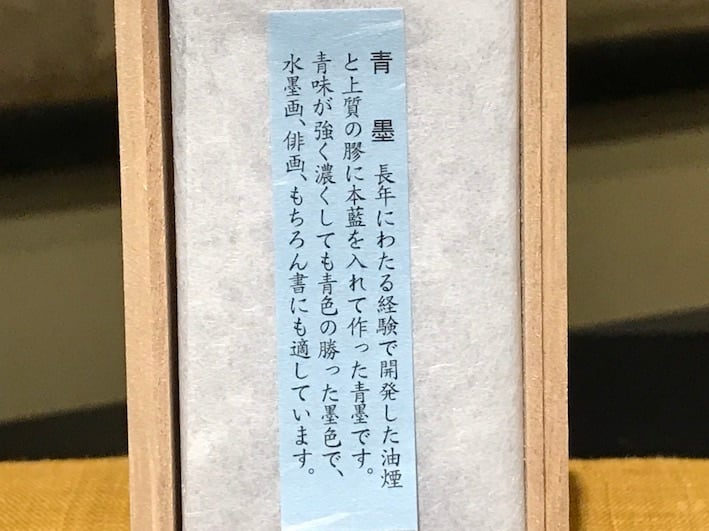 青墨 長年にわたる経験で開発した油煙
と上質の膠に本藍を入れて作った青墨です。
青味が強く濃くしても青色の勝った墨色で、
水墨画、俳画、もちろん書にも適しています。